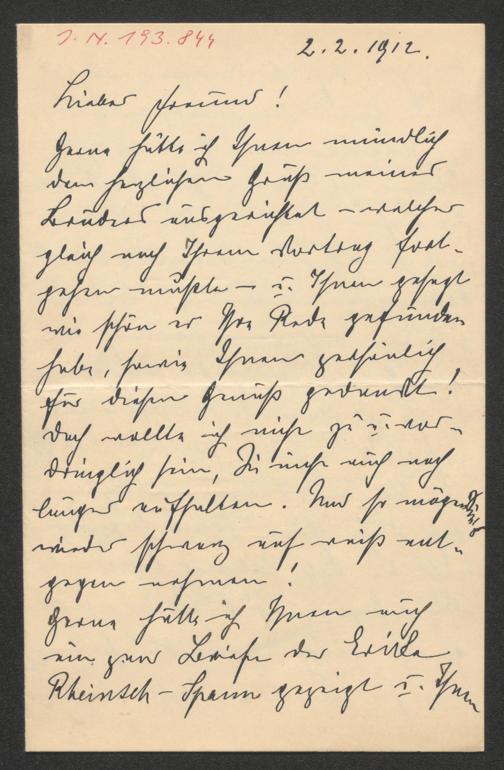 J. N. 193.844
2.2.1912.
Lieber Freund!
Gerne hätte ich Ihnen mündlich
den herzlichen Gruß meines
Bruders ausgerichtet – welcher
gleich nach Ihrem Vortrag fort-
gehen mußte – u. Ihnen gesagt
wie schön er Ihre Rede gefunden
habe, sowie Ihnen persönlich
für diesen Genuß gedankt!
Doch wollte ich nicht zu vor-
dringlich sein, Sie nicht auch noch
länger aufhalten. Und so mögen Sie's
wieder schwarz auf weiß ent-
gegen nehmen!
Gerne hätte ich Ihnen auch
ein paar Briefe der Erika
Rheinsch-Spann gezeigt u. Ihnen